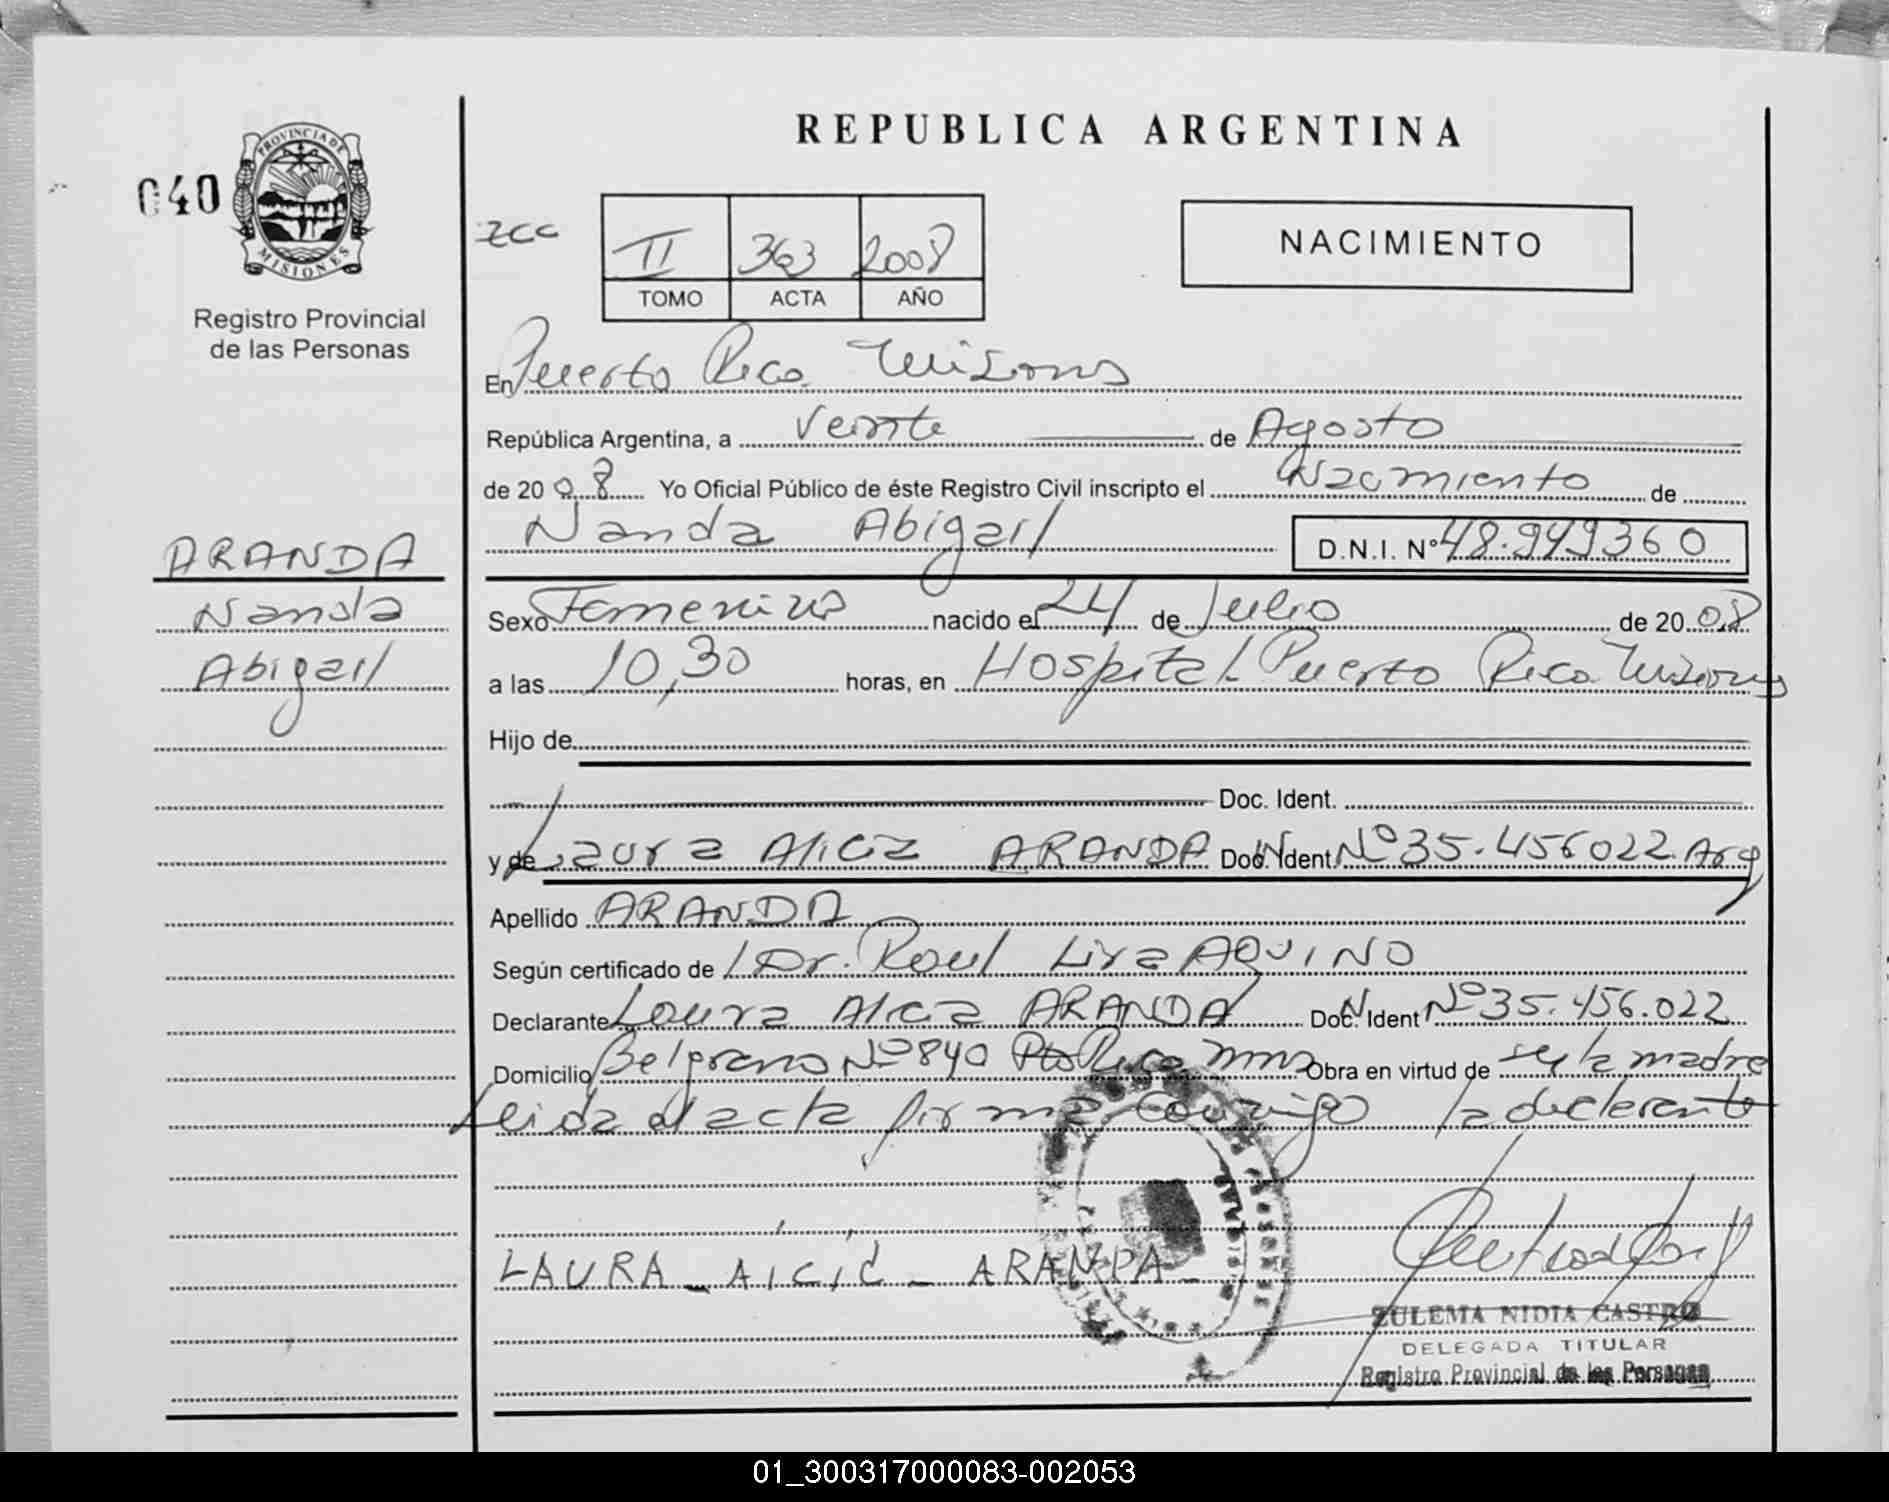 REPUBLICA ARGENTINA
040
PROVINCIA DE
MISIONES
Registro Provincial
de las Personas
zcc
II 363 2008
TOMO ACTA AÑO
NACIMIENTO
En Puerto Rico Misiones
República Argentina, a veinte de Agosto
de 2008 Yo Oficial Público de éste Registro Civil inscripto el Nacimiento de
Nanda Abigail D.N.I. Nº 48.949360
ARANDA
Nanda
Abigail
Sexo Femenino nacido el 24 de Julio de 2008
a las 10,30 horas, en Hospital Puerto Rico Misiones
Hijo de
Doc. Ident.
y de Laura Alicia ARANDA Doc. Ident. Nº 35.456022 Arg
Apellido ARANDA
Según certificado de Dr. Raul Liza AQUINO
Declarante Laura Alicia ARANDA Doc. Ident Nº 35.456.022
Domicilio Belgrano Nº 840 Pto Rico Mnes Obra en virtud de ser la madre
Leida el acta firma conmigo la declarante
LAURA - AlCIC - ARANDA -
ZULEMA NIDIA CASTRO
DELEGADA TITULAR
Registro Provincial de las Personas
01_300317000083-002053